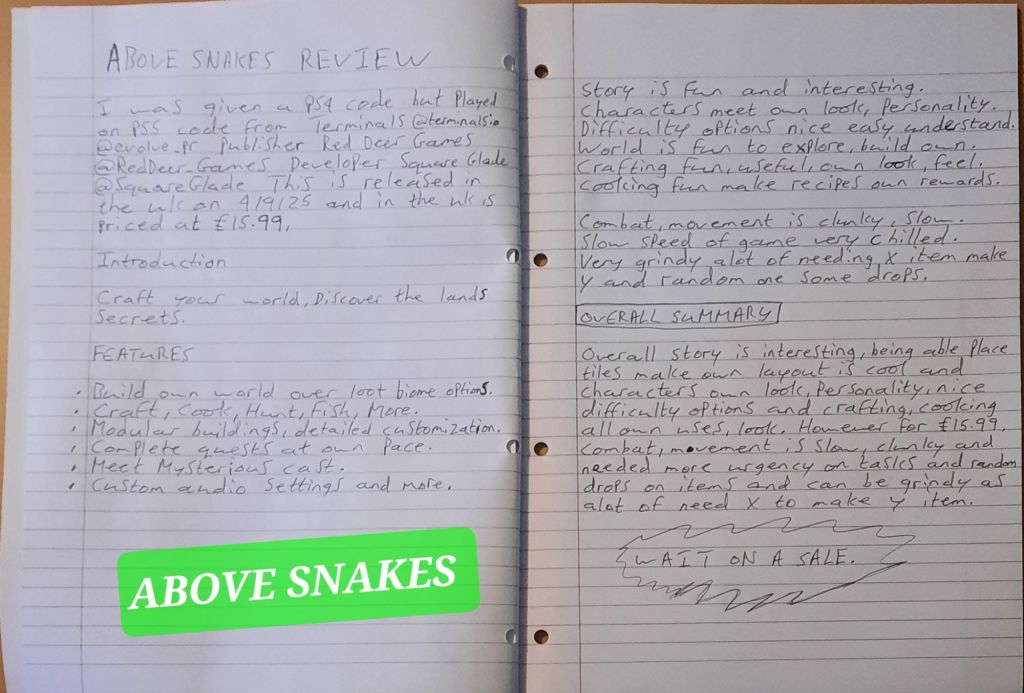 ABOVE SNAKES REVIEW
I was given a PS4 code but Played
on PS5 code from Terminals @terminalsio
@evolve_pr Publisher Red Deer Games
@RedDeer_Games Developer Square Glade
@SquareGlade This is released in
the uk on 4/9/25 and in the uk is
Priced at £15.99.
Introduction
Craft your world, Discover the lands
Secrets.
FEATURES
• Build own world over loot biome options.
• Craft, Cook, Hunt, Fish, More.
• Modular buildings, detailed customization.
• Complete quests at own Pace.
• Meet Mysterious cast.
• Custom audio Settings and more.
ABOVE SNAKES
Story is fun and interesting.
Characters meet own look, Personality.
Difficulty options nice easy understand.
World is fun to explore, build own.
Crafting fun, useful, own look, feel.
Cooking fun make recipes own rewards.
Combat, movement is clunky, Slow.
Slow Speed of game very chilled.
Very grindy alot of needing X item make
y and random one some drops.
OVERALL SUMMARY
Overall Story is interesting, being able Place
tiles make own layout is cool and
Characters own look, Personality, nice
difficulty options and crafting, cooking
all own uses, look. However for £15.99,
Combat, movement is Slow, clunky and
needed more urgency on tasks and random
drops on items and can be grindy as
alot of need X to make y item.
WAIT ON A SALE.